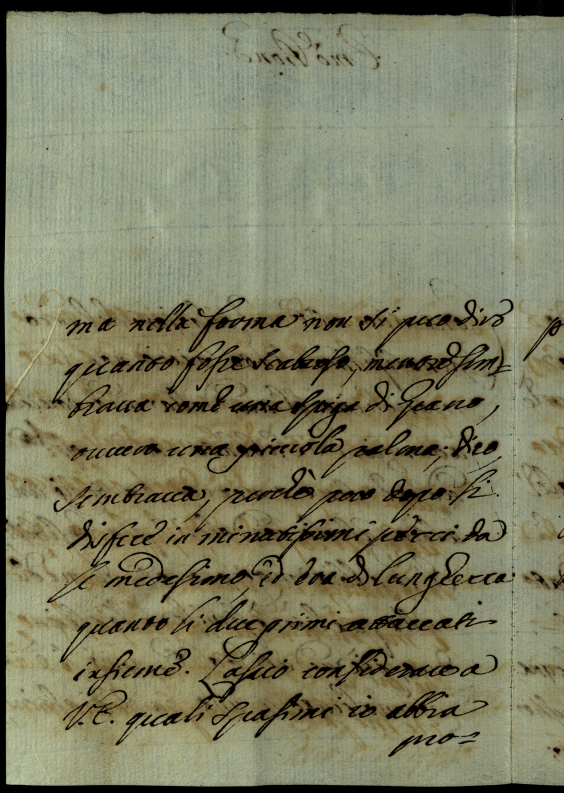 ma nella forma non si può dire
quanto fosse scabroso, mentre sem=
brava come una spiga di Grano,
ovvero una piccola palma, dico
sembrava, perchè poco dopo si
disfece in minutissimi pezzi da
se medesimo, ed era di lunghezza
quanto li due primi attaccati
insieme. Lascio considerare a
V.E. quali spasimi io abbia
pro=